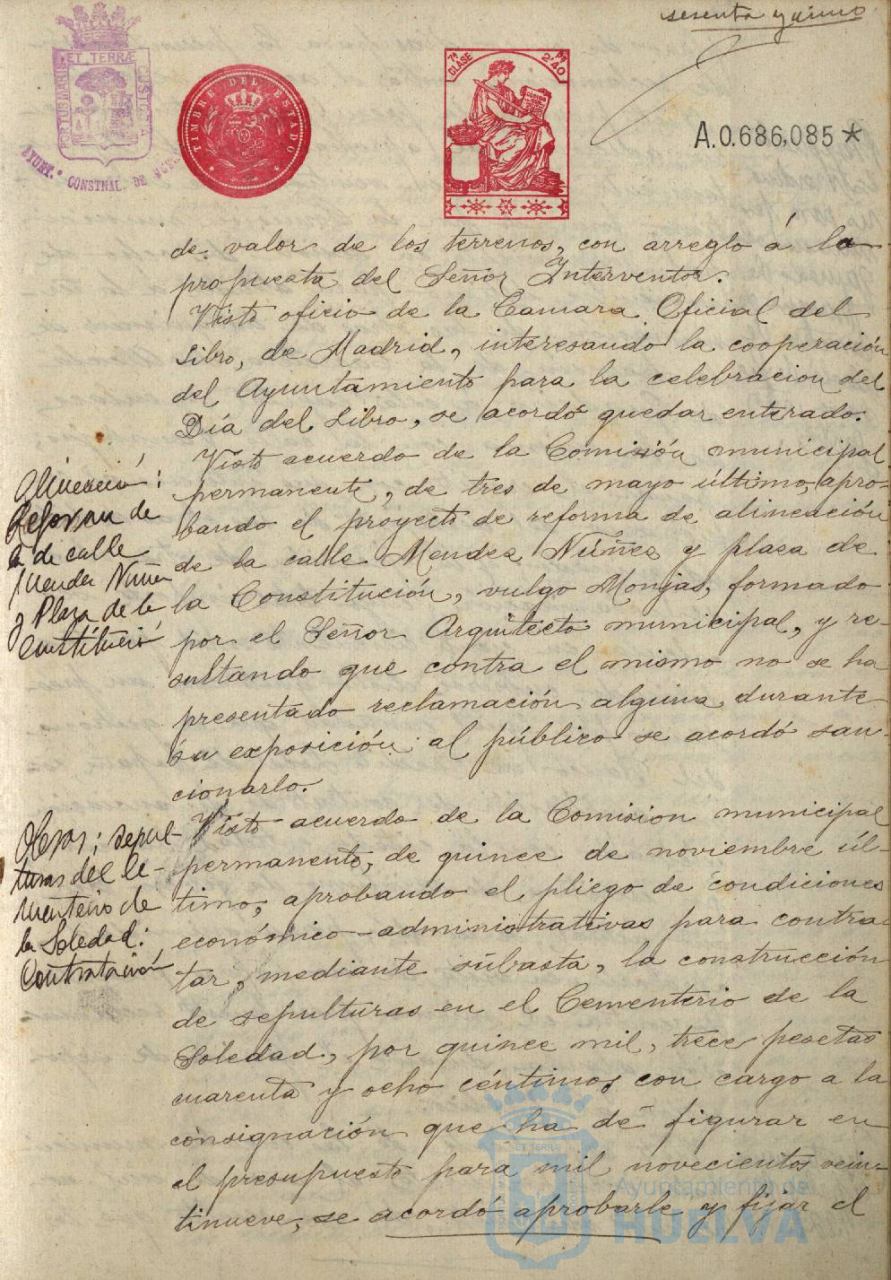 sesenta y cinco
PORTUS MARIS ET TERRÆ CUSTODIA
AYUNT.º CONSTNAL. DE
TIMBRE DEL ESTADO
7ª CLASE
2'40 Pts
A.0.686,085*
de valor de los terrenos, con arreglo á la
propuesta del Señor Interventor.
Visto oficio de la Camara Oficial del
Libro, de Madrid, interesando la cooperación
del Ayuntamiento para la celebracion del
Día del Libro, se acordó quedar enterado.
Alineació:
Reforma de
la de calle
Mendez Nuñez
y Plaza de la
Constitució
Visto acuerdo de la Comisión municipal
permanente, de tres de mayo último, apro-
bando el proyecto de reforma de alineación
de la calle Mendez Núñez y plaza de
la Constitución, vulgo Monjas, formado
por el Señor Arquitecto municipal, y re-
sultando que contra el mismo no se ha
presentado reclamación alguna durante
su exposición al público se acordó san-
cionarlo.
Obras; sepul-
turas del Ce-
menterio de
la Soledad:
Contratación
Visto acuerdo de la Comision municipal
permanente, de quince de noviembre úl-
timo, aprobando el pliego de condiciones
económico-administrativas para contra-
tar, mediante subasta, la construcción
de sepulturas en el Cementerio de la
Soledad, por quince mil, trece pesetas
cuarenta y ocho céntimos con cargo a la
consignación que ha de figurar en
el presupuesto para mil novecientos vein-
tinueve, se acordó aprobarle y fijar el
Ayuntamiento de
HUELVA